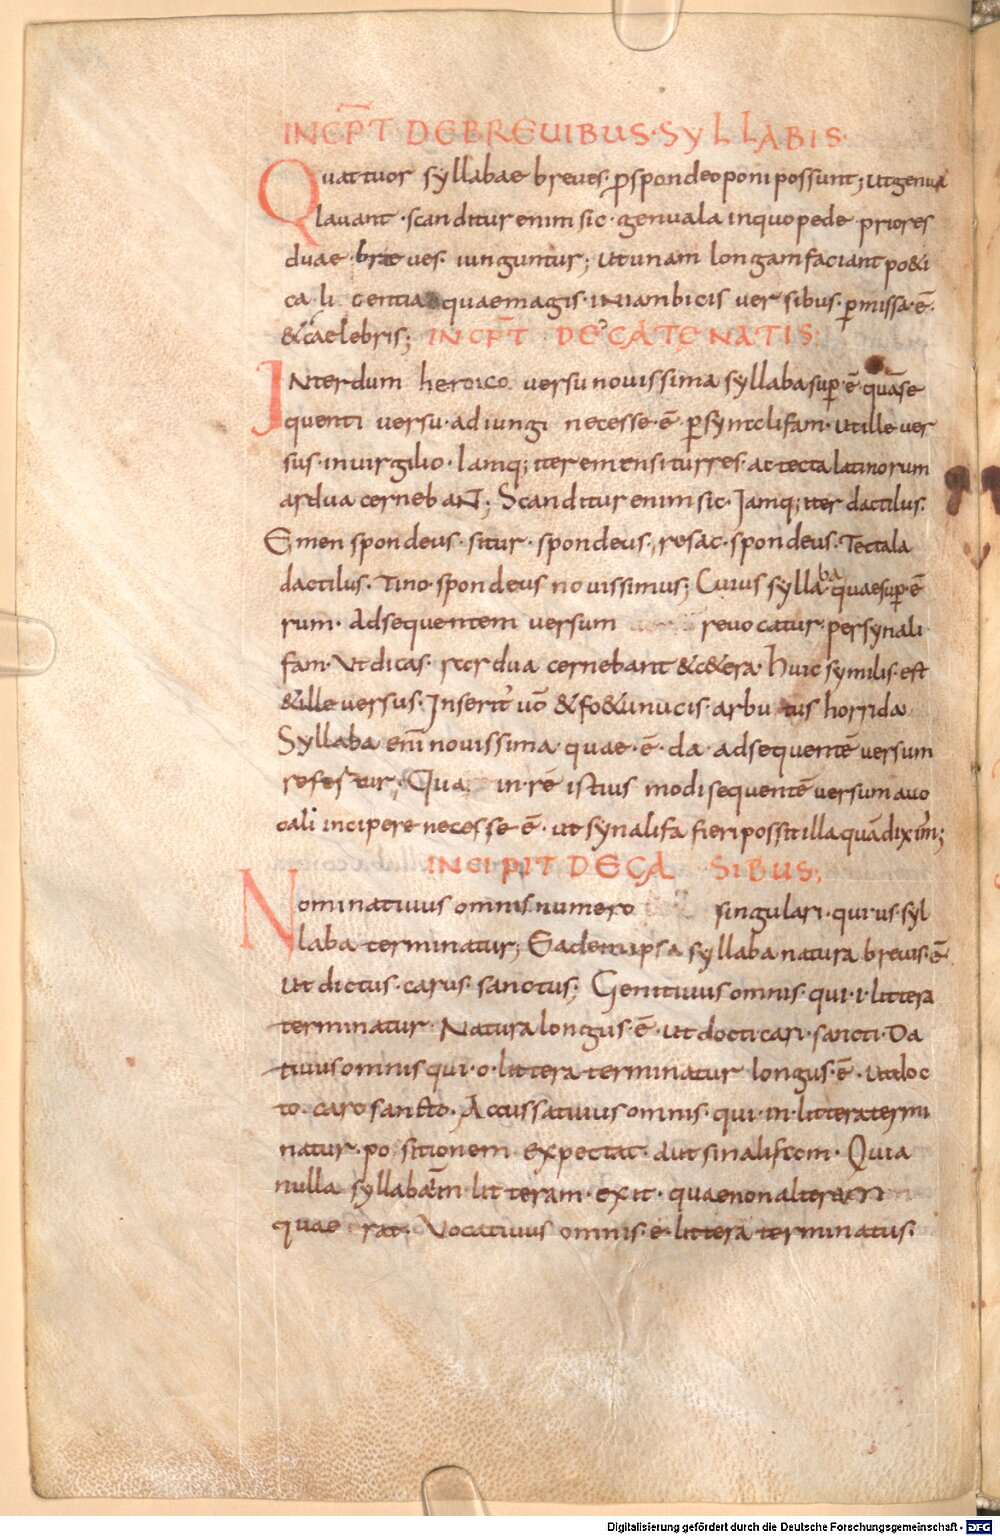 INCEP̄T DE BREUIBUS·SYLLABIS·
Quattuor syllabae breues· ꝓ spondeo poni possunt; ut genua
lauant ·scanditur enim sic· genuala in quo pede· priores
duae· breues iunguntur; ut unam longam faciant po&i
ca li centia quae magis· in iambicis uersibus· ꝑmissa·ē·
& caelebris; INCEP̄T DE CATENATIS·
INterdum heroico uersu nouissima syllaba suꝑ·ē·quā se
quenti uersu·adiungi necesse·ē· ꝑ synolifam· ut ille uer
sus· in uirgilio· Iamq; iter emensi turres· ac tecta latinorum
ardua cernebaNt; Scanditur enim sic· Iamq; iter dactilus·
Emen spondeus· situr· spondeus, res ac· spondeus· Tectala
dactilus· Tino· spondeus nouissimus; Cuius syllaba quae suꝑ·ē
rum· Adsequentem uersum reuocatur· per synali
fam· Ut dicas· rardua cernebant &c&era· huic symilis·est
& ille uersus· Inserit᷒ uō & fo&u nucis· arbutus horrida
Syllaba enī nouissima· quae·ē· da· adsequentē uersum
refertur; Qua in rē istius modi sequentē uersum a uo
cali incipere necesse ē· ut synalifa fieri possit illa quā dixim᷒;
INCIPIT DE CASIBUS;
Nominatiuus omnis numero singulari· qui us·syl
laba terminatur; Eadem ipsa syllaba natura breuis·ē·
Ut dictus·carus·sanctus; Genitiuus omnis· qui·i·littera
terminatur· Natura longus·ē· ut docti cari·sancti·Da
tiuus omnis qui·o·littera terminatur longus·ē· ut doc
to· caro sancto· Accussatiuus omnis· qui·in·littera termi
natur· positionem expectat· aut sinaliftom· Quia
nulla syllaba·in·litteram·exit· quae non alteram
quae rat· Uocatiuus omnis·e·littera terminatus·
Digitalisierung gefördert durch die Deutsche Forschungsgemeinschaft - DFG